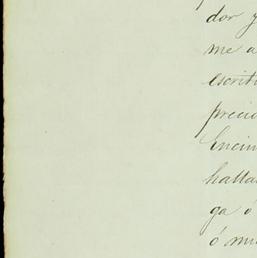 dor y
me a
escrit
precio
Encim
halla
ga ó
ó mu